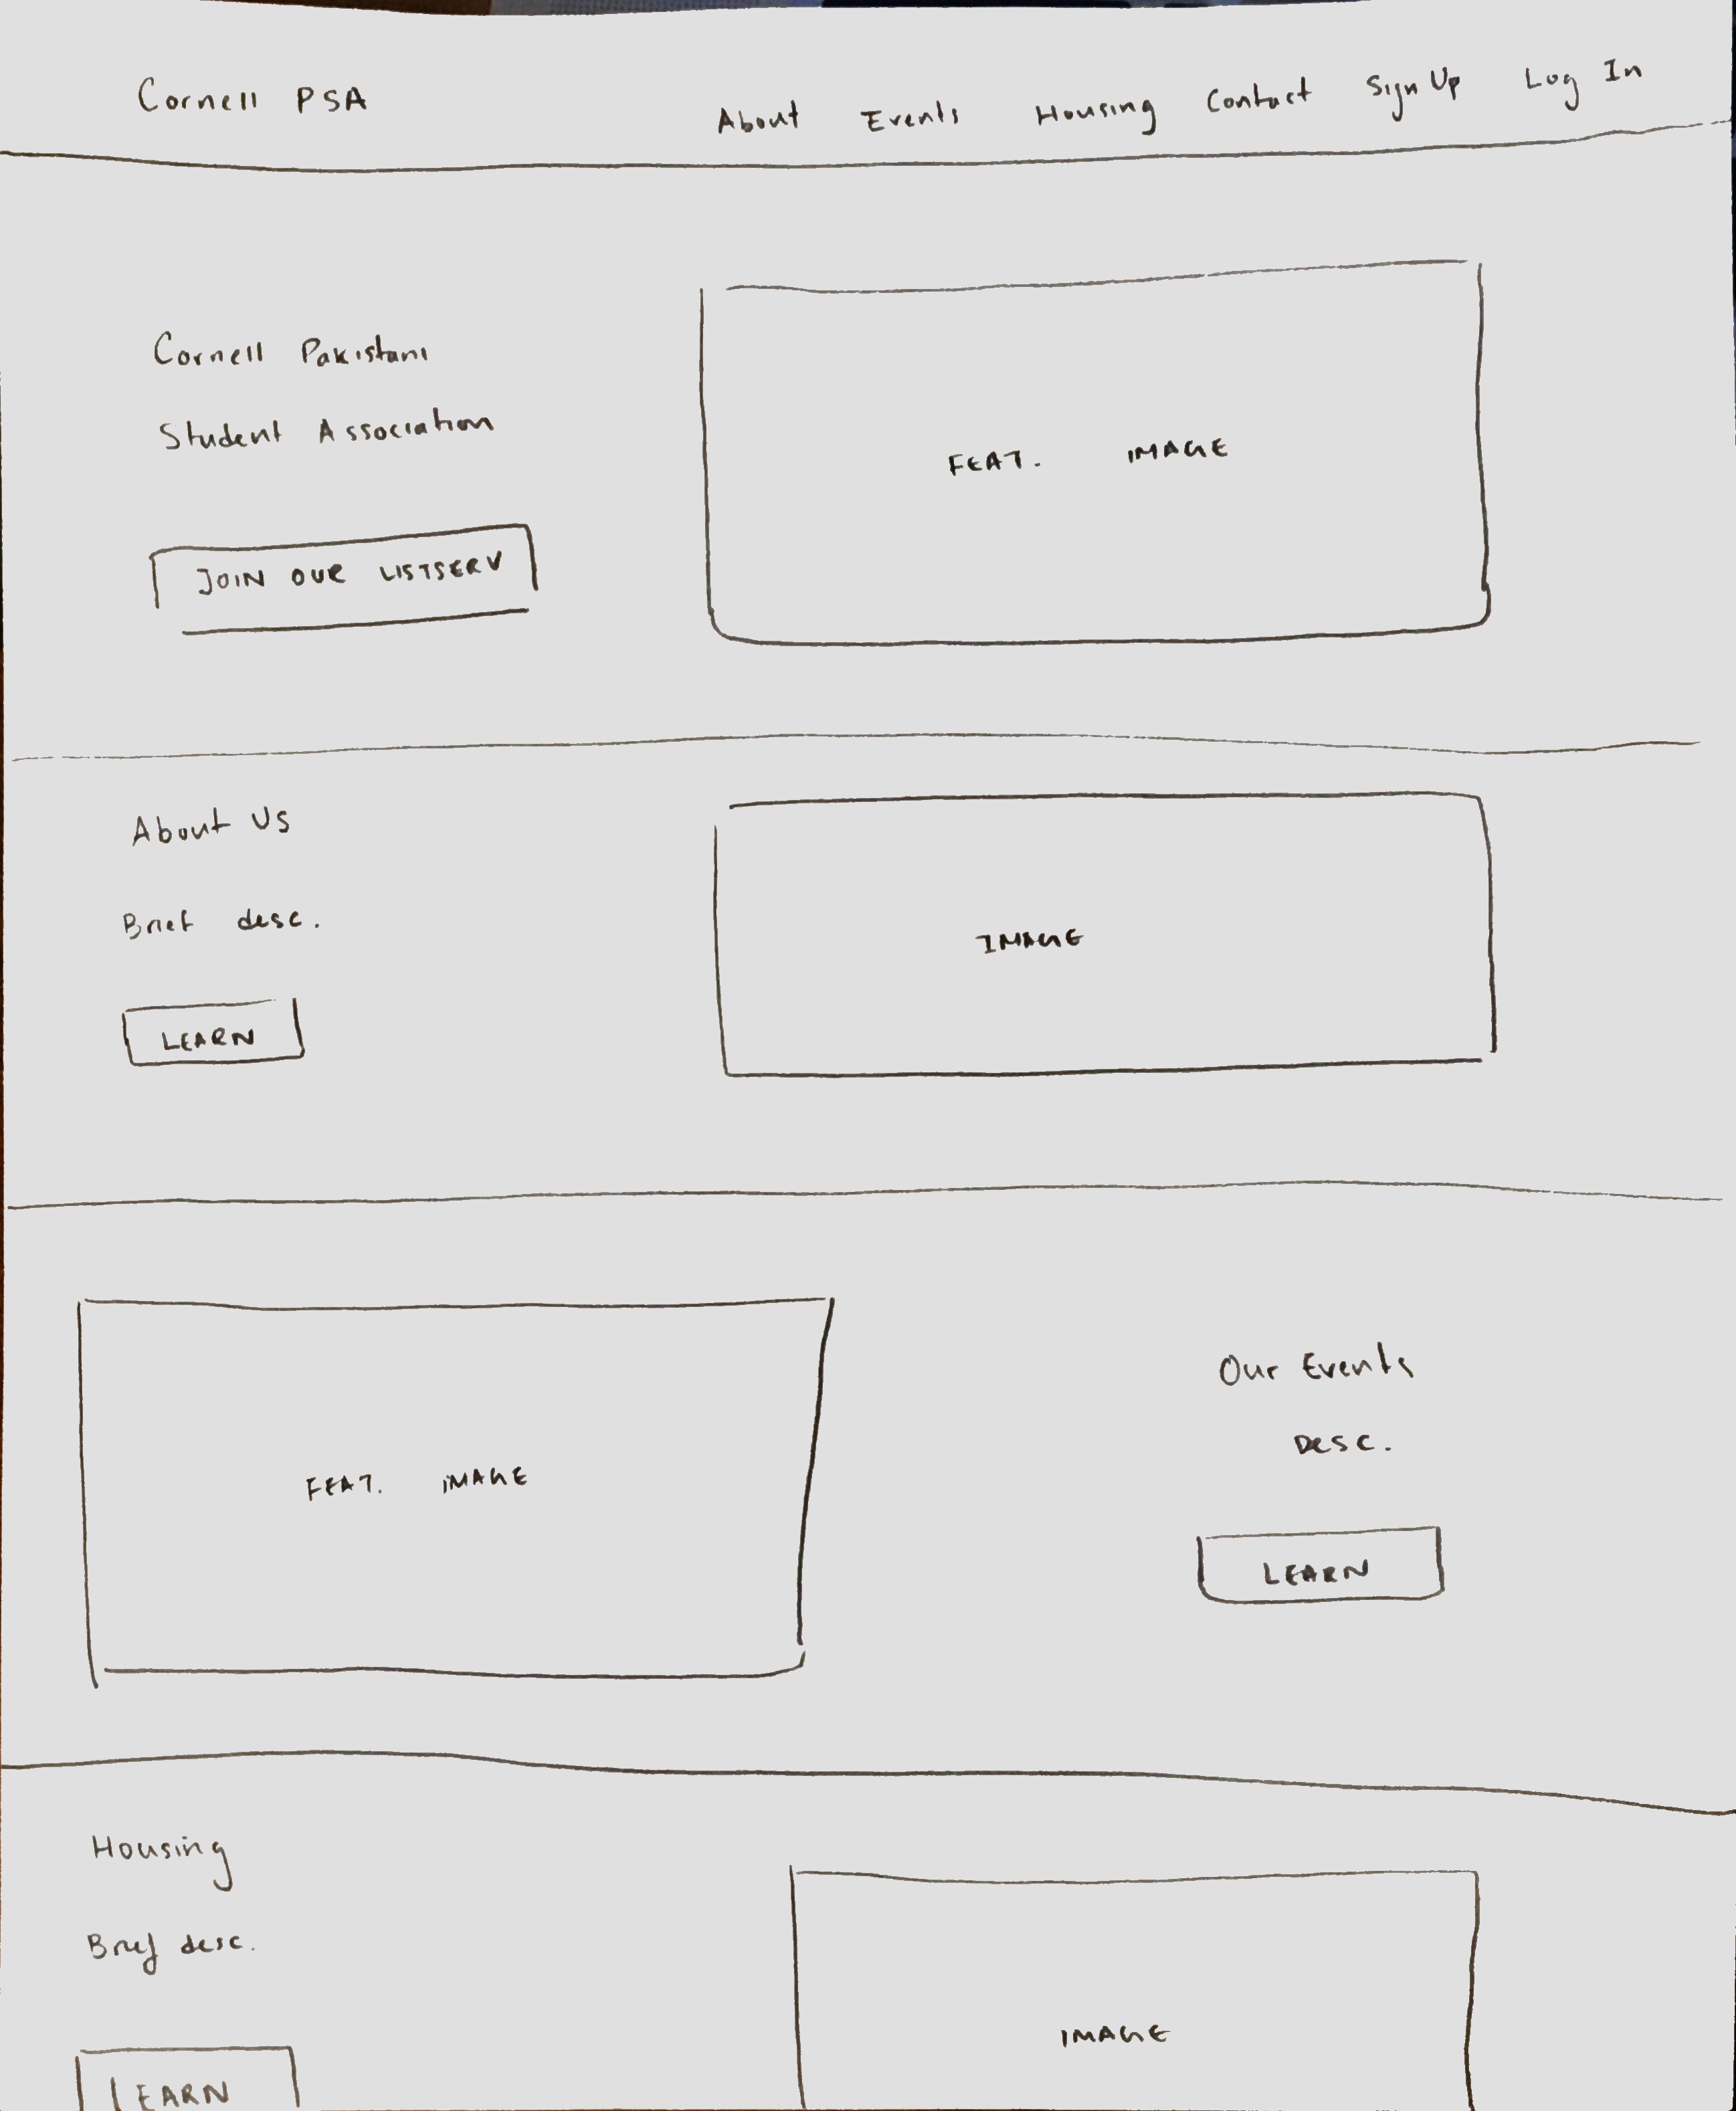 Cornell PSA
About Events Housing Contact Sign Up Log In
Cornell Pakistani
Student Association
JOIN OUR LISTSERV
FEAT. IMAGE
About Us
Brief desc.
LEARN
IMAGE
FEAT. IMAGE
Our Events
Desc.
LEARN
Housing
Brief desc.
LEARN
IMAGE